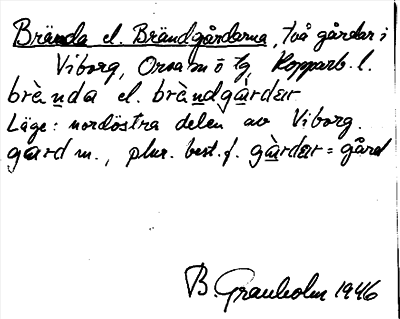 Brända el. Brändgårdarna, två gårdar i
Viborg, Orsa sn ö tg, Kopparb. l.
brènda el. brèndgàrdar
Läge: nordöstra delen av Viborg.
gard m., plur. best. f. gàrdar = gård
B. Granholm 1946